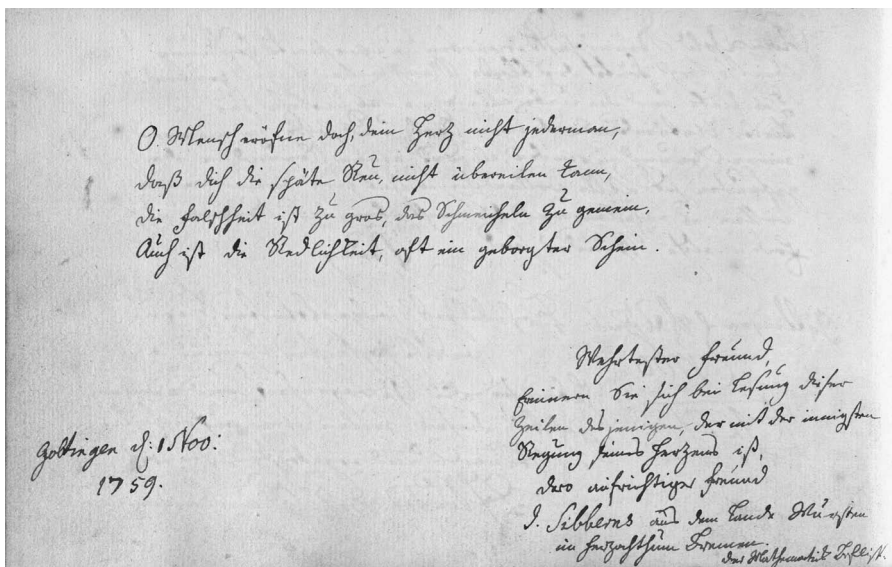 O Mensch eröfne doch, dein Hertz nicht jederman,
daß dich die späte Reu, nicht übereilen kann,
die falschheit ist zu gros, das Schmeicheln zu gemein,
Auch ist die Redlichkeit, oft ein geborgter Schein.
Wehrtester freund,
Erinnern Sie sich bei Lesung dieser
Zeilen desjenigen, der mit der innigsten
Regung seines Hertzens ist,
dero aufrichtiger freund
Göttingen d: 1 Nov:
1759.
J. Sibberns aus dem Lande Wursten
im Herzogthum Bremen.
der Mathematik